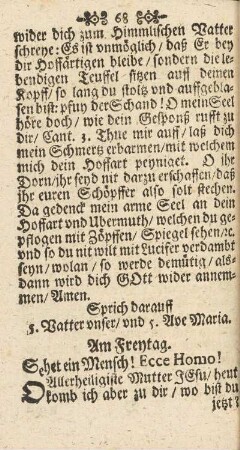 68
wider dich zum Himmlischen Vatter
schreye: Es ist vnmöglich / daß Er bey
dir Hoffärtigen bleibe / sondern die le-
bendigen Teuffel sitzen auff deinen
Kopff / so lang du stoltz vnd auffgeblas-
en bist: pfuy der Schand! O mein Seel
höre doch / wie dein Gesponß rufft zu
dir / Cant. 3. Thue mir auff / laß dich
mein Schmertz erbarmen / mit welchem
mich dein Hoffart peyniget. O ihr
Dorn / ihr seyd nit darzu erschaffen / daß
ihr euren Schöpffer also solt stechen.
Da gedenck mein arme Seel an dein
Hoffart vnd Ubermuth / welchen du ge-
pflogen mit Zöpffen / Spiegel sehen / ꝛc.
vnd so du nit wilt mit Lucifer verdambt
seyn / wolan / so werde demütig / als-
dann wird dich GOtt wider annem-
men / Amen.
Sprich darauff
5. Vatter vnser / vnd 5. Ave Maria.
Am Freytag.
Sehet ein Mensch! Ecce Homo!
O Allerheiligiste Mutter JEsu / heut
komb ich aber zu dir / wo bist du
jetzt?